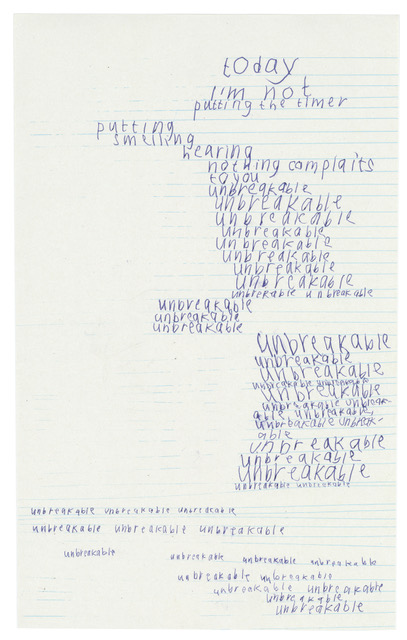 today
I'm not
putting the timer
putting
smelling
hearing
nothing complaits
to you
unbreakable
unbreakable
unbreakable
unbreakable
unbreakable
unbreakable
unbreakable
unbreakable
unbrekable unbreakable
unbreakable
unbreakable
unbreakable
unbreakable
unbreakable
unbreakable
unbreakable unbreakable
unbreakable
unbreakable unbreak-
able unbreakable,
unbreakable unbreak-
able
unbreakable
unbreakable
unbreakable
unbreakable unbreakable
unbreakable unbreakable unbreakable
unbreakable unbreakable unbreakable
unbreakable unbreakable unbreakable unbreakable
unbreakable unbreakable
unbreakable unbreakable
unbreakable
unbreakable